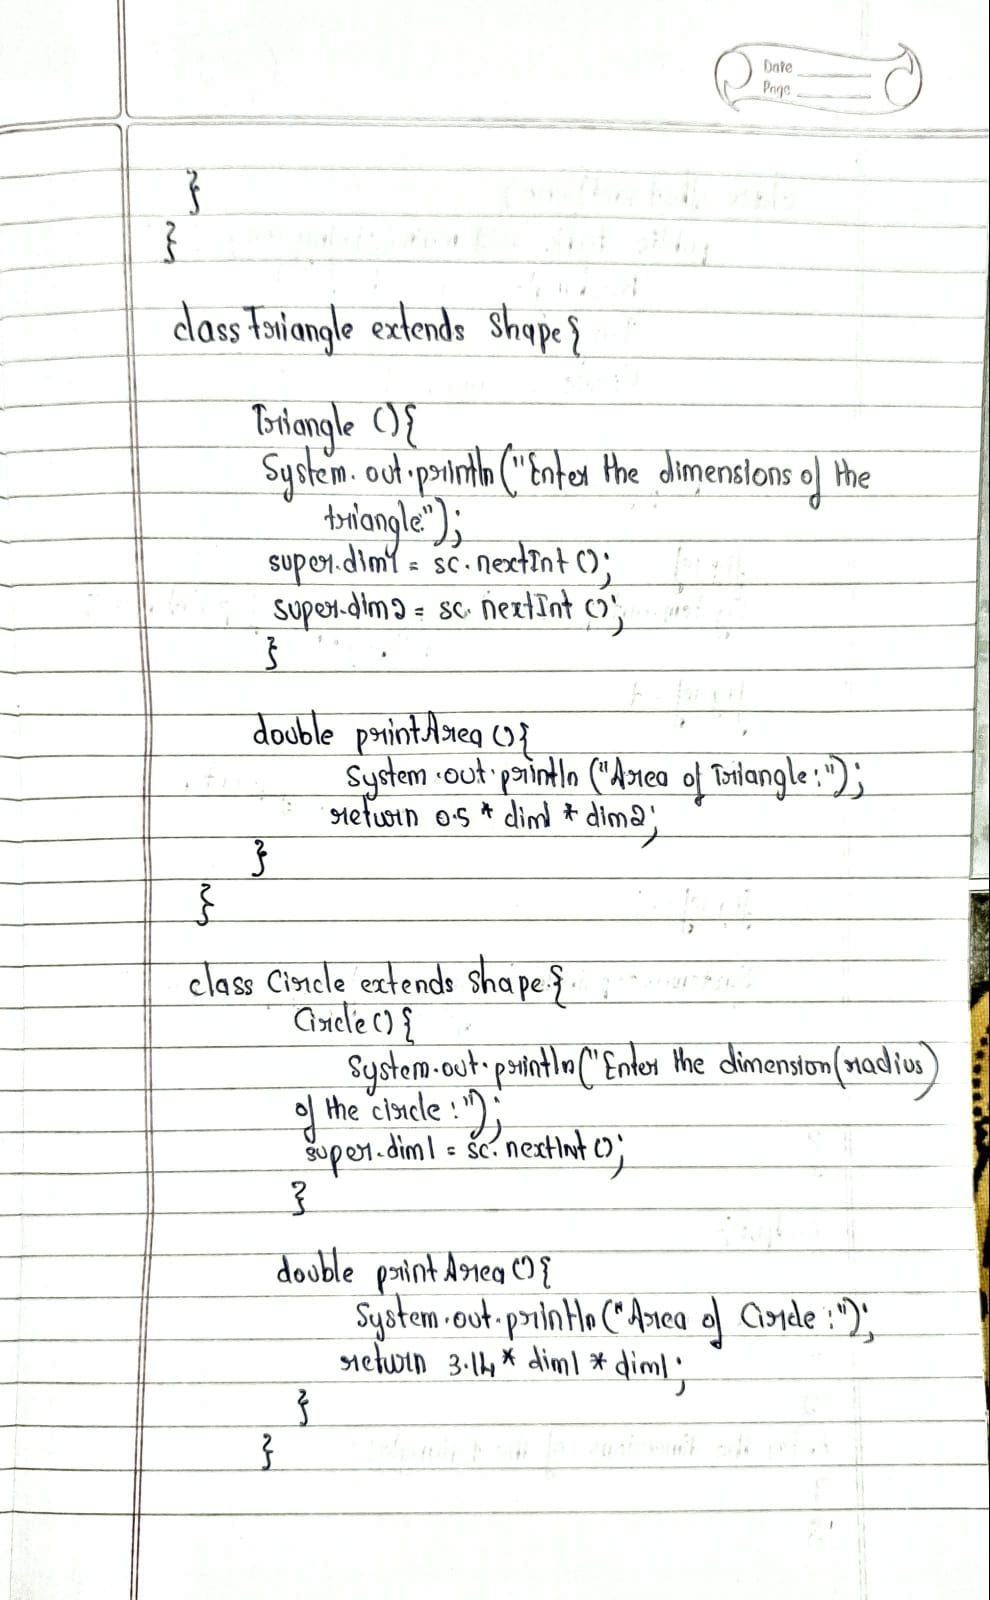 Date
Page
}
}
class Triangle extends Shape{
Triangle (){
System.out.println("Enter the dimensions of the
triangle:");
super.dim1 = sc.nextInt();
super.dim2 = sc.nextInt();
}
double printArea(){
System.out.println("Area of Triangle:");
return 0.5 * dim1 * dim2;
}
}
class Circle extends Shape{
Circle(){
System.out.println("Enter the dimension(radius)
of the circle:");
super.dim1 = sc.nextInt();
}
double printArea(){
System.out.println("Area of Circle:");
return 3.14 * dim1 * dim1;
}
}